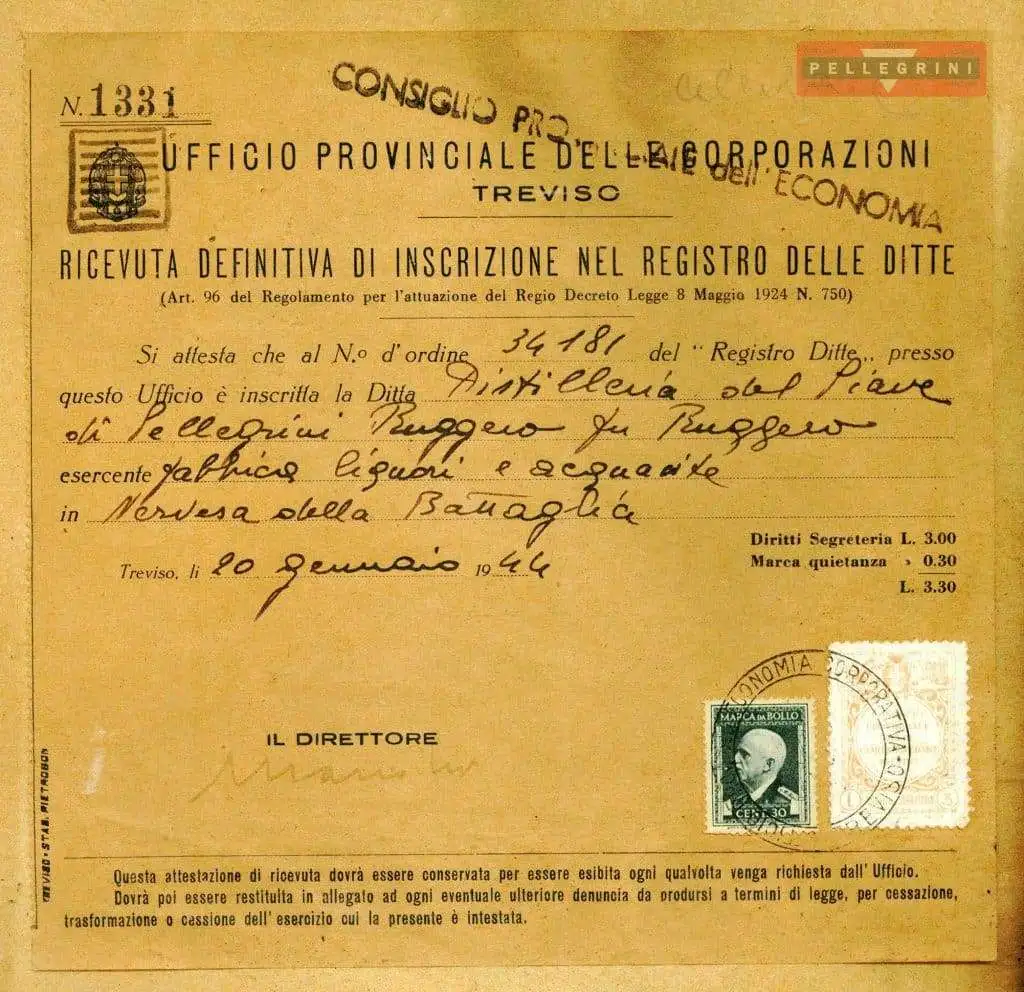 PELLEGRINI
N. 1331
CONSIGLIO PRO ALE dell' ECONOMIA
UFFICIO PROVINCIALE DELLE CORPORAZIONI
TREVISO
RICEVUTA DEFINITIVA DI INSCRIZIONE NEL REGISTRO DELLE DITTE
(Art. 96 del Regolamento per l'attuazione del Regio Decreto Legge 8 Maggio 1924 N. 750)
Si attesta che al N.o d'ordine 34181 del "Registro Ditte„ presso
questo Ufficio è inscritta la Ditta Distilleria del Piave
di Pellegrini Ruggero fu Ruggero
esercente fabbrica liquori e acquavite
in Nervesa della Battaglia
Diritti Segreteria L. 3.00
Marca quietanza » 0.30
L. 3.30
Treviso, li 20 gennaio 1944
ECONOMIA CORPORATIVA - TREVISO
MARCA DA BOLLO
CENT. 30
IL DIRETTORE
TREVISO - STAB. PIETROBON
Questa attestazione di ricevuta dovrà essere conservata per essere esibita ogni qualvolta venga richiesta dall' Ufficio.
Dovrà poi essere restituita in allegato ad ogni eventuale ulteriore denuncia da prodursi a termini di legge, per cessazione,
trasformazione o cessione dell' esercizio cui la presente è intestata.